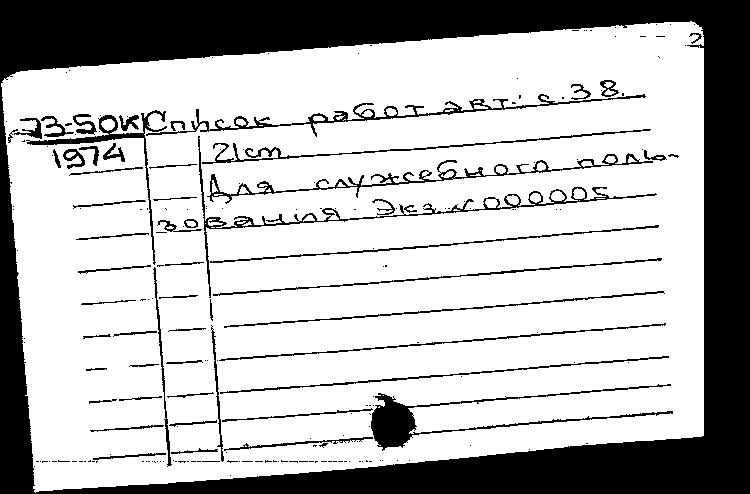 2
73-50K Список работ авт.: с.38.
1974 21cm
Для служебного поль-
зования. Экз. N 000005.